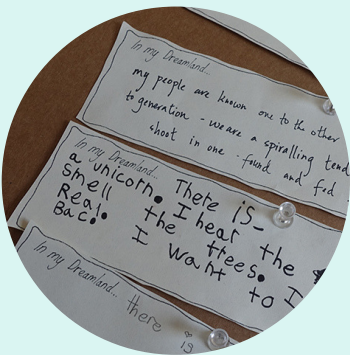 In my Dreamland...
my people are known one to the other
to generation - we are a spiralling
shoot in one - found and fed
In my Dreamland...
a unicorn. There is
smell I hear the
Real the trees.
Bac I want to
In my Dreamland... there
is